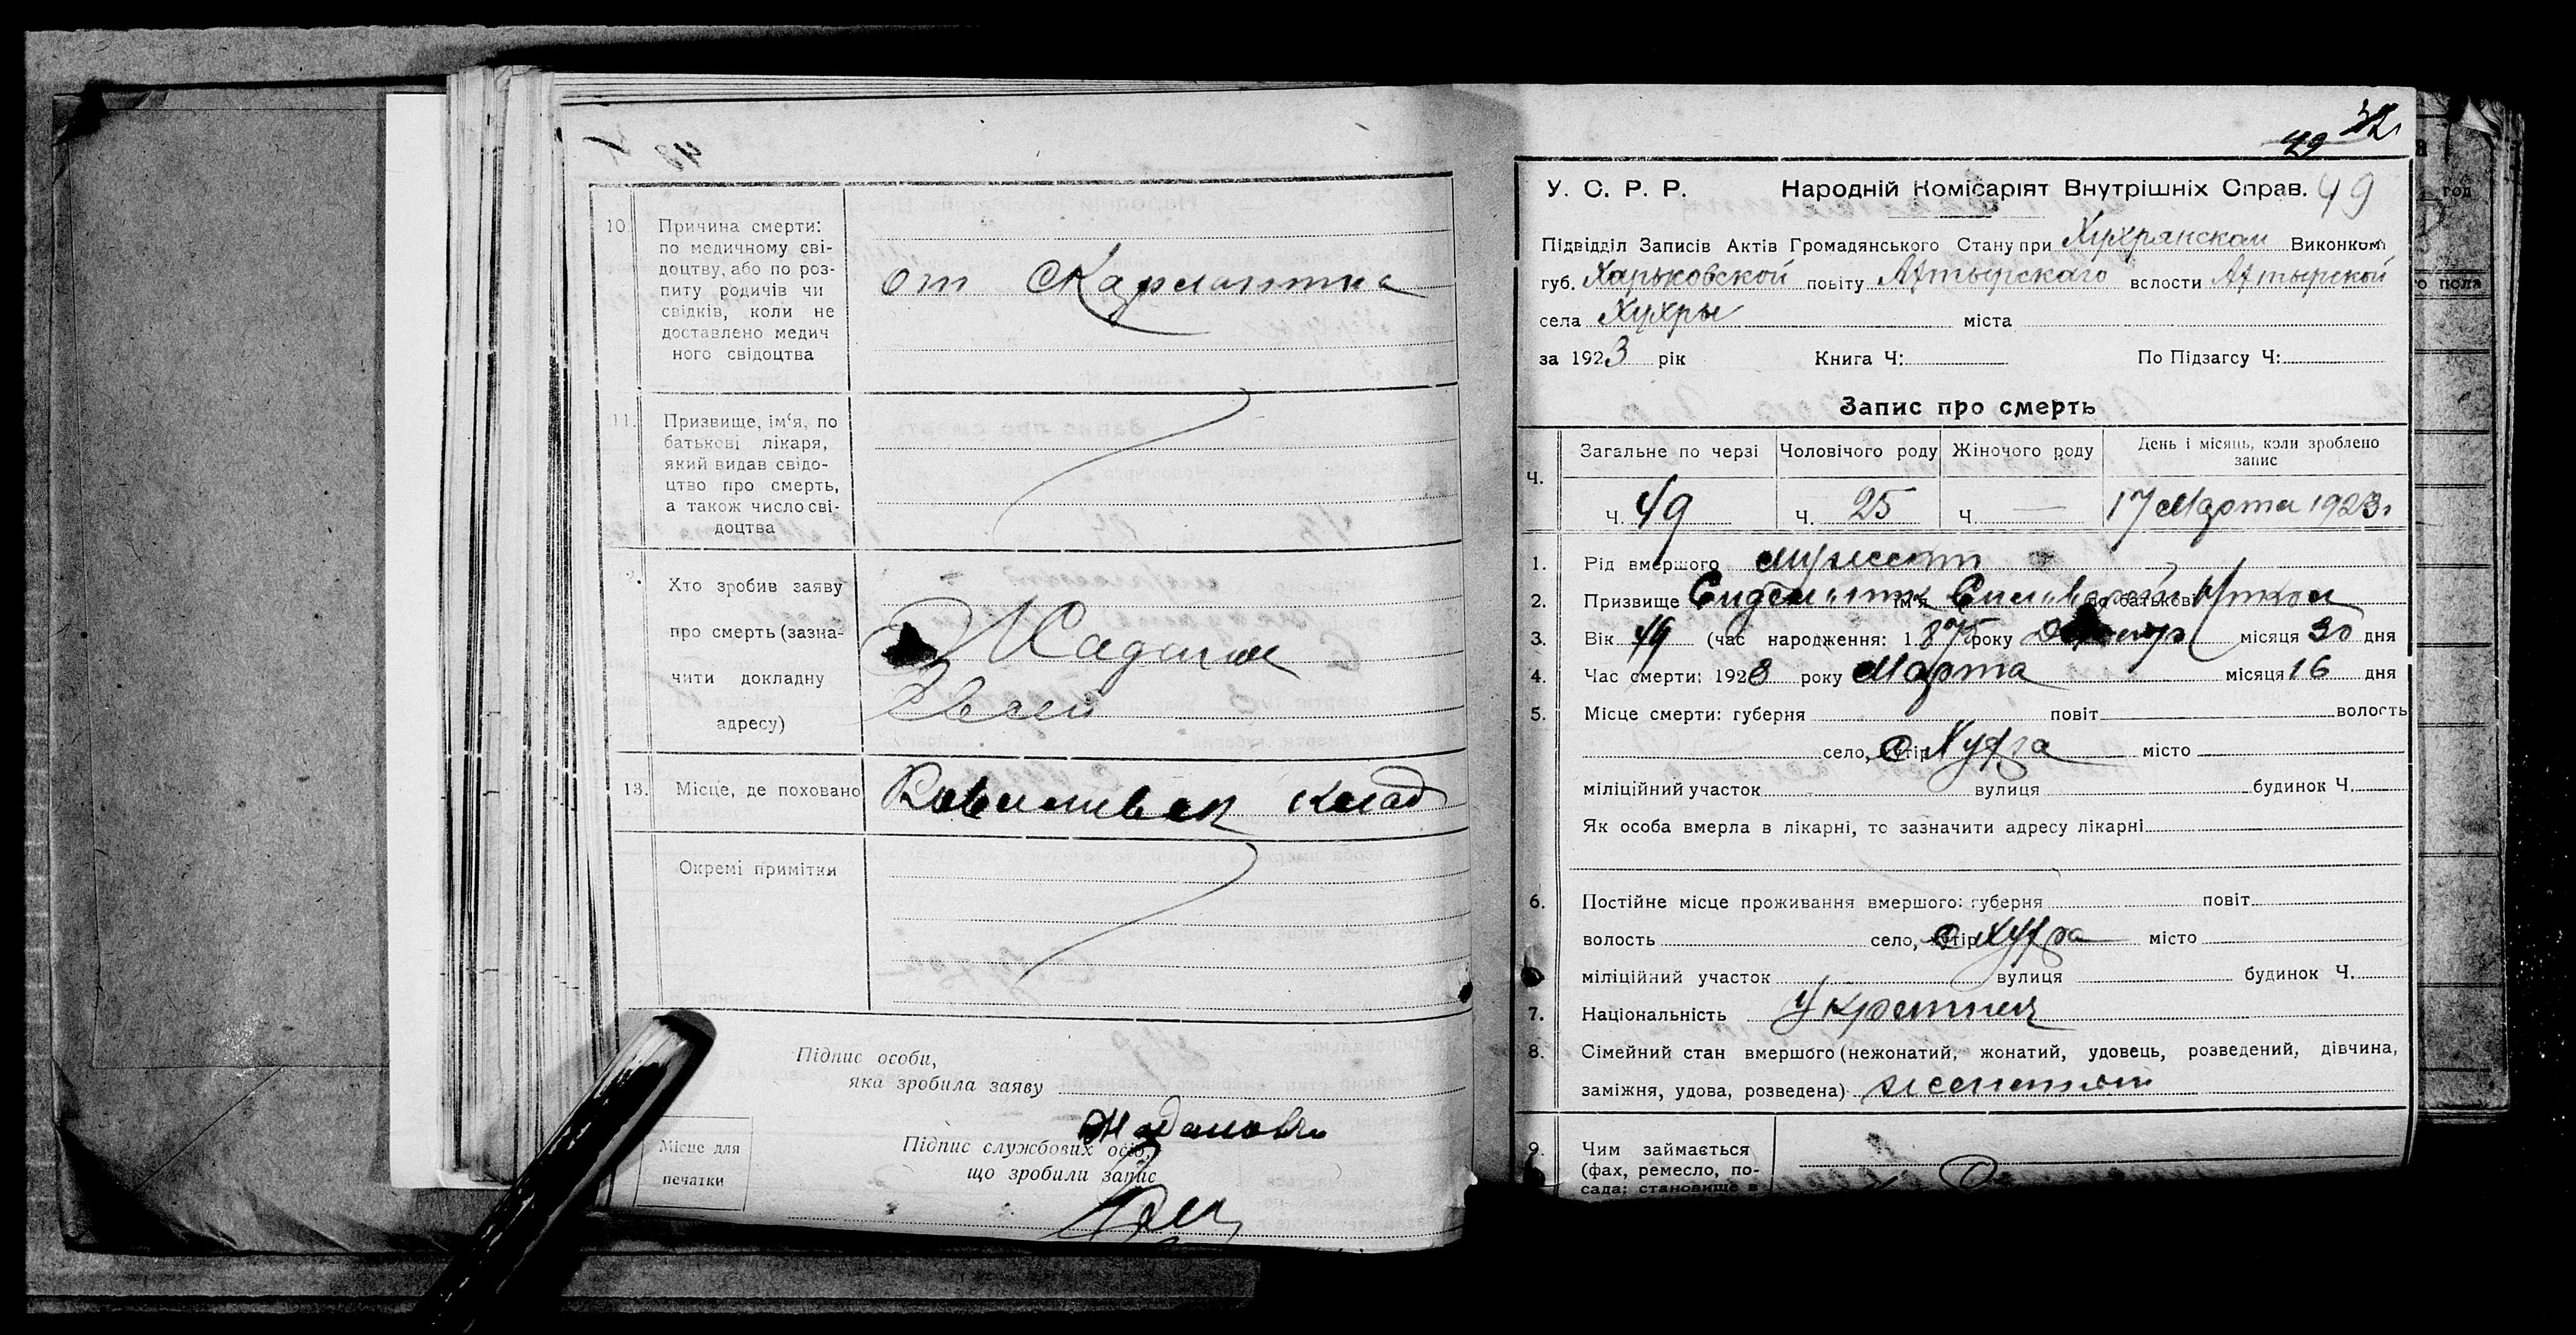 10. Причина смерти:
по медичному сві-
доцтву, або по роз-
питу родичів чи
свідків, коли не
доставлено медич
ного свідоцтва
от Скарлатина
11. Призвище, ім‘я, по
батькові лікаря,
який видав свідо-
цтво про смерть,
а також число сві-
доцтва
Хто зробив заяву
про смерть (зазна-
чити докладну
адресу)
13. Місце, де поховано
клад
Окремі примітки
Підпис особи,
яка зробила заяву
Місце для
печатки
Підпис службових осіб,
що зробили запис
32
49
У. С. Р. Р. Народній Комісаріят Внутрішніх Справ. 49
Підвідділ Записів Актів Громадянського Стану при Хухрянском Виконкомі
губ. Харьковской повіту Ахтырскаго волости Ахтырской
села Хухры міста
за 1923 рік Книга Ч: По Підзагсу Ч:
Запис про смерть
Ч.
Загальне по черзі Чоловічого роду Жіночого роду День і місяць, коли зроблено
запис
Ч. 49 Ч. 25 Ч. — 17 Марта 1923
1. Рід вмершого
2. Призвище ім‘я по батькові
3. Вік 49 (час народження: 1875 року місяця 30 дня
4. Час смерти: 1923 року Марта місяця 16 дня
5. Місце смерти: губерня повіт волость
село, хутір с Хухра місто
міліційний участок вулиця будинок Ч.
Як особа вмерла в лікарні, то зазначити адресу лікарні
6. Постійне місце проживання вмершого: губерня повіт
волость село, хутір с Хухра місто
міліційний участок вулиця будинок Ч.
7. Національність
8. Сімейний стан вмершого (нежонатий, жонатий, удовець, розведений, дівчина,
заміжня, удова, розведена)
9. Чим займається
(фах, ремесло, по-
сада; становище в